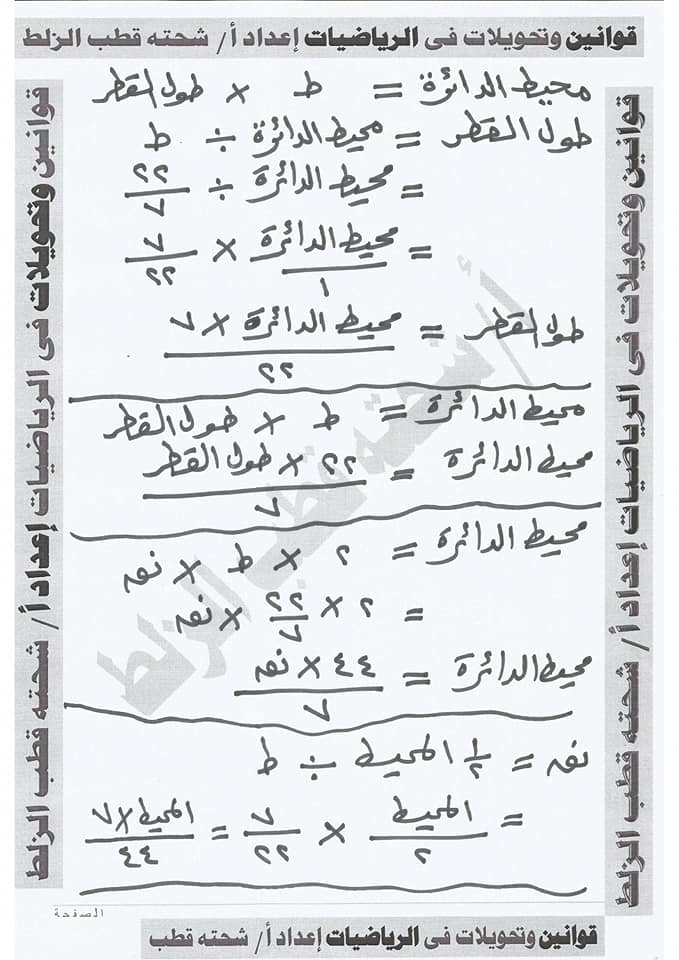 قوانين وتحويلات فى الرياضيات إعداد أ/ شحته قطب الزلط
قوانين وتحويلات فى الرياضيات إعداد أ/ شحته قطب الزلط
قوانين وتحويلات فى الرياضيات إعداد أ/ شحته قطب الزلط
محيط الدائرة = ط × طول القطر
طول القطر = محيط الدائرة ÷ ط
= محيط الدائرة ÷ ٢٢/٧
= محيط الدائرة/١ × ٧/٢٢
طول القطر = محيط الدائرة × ٧/٢٢
محيط الدائرة = ط × طول القطر
محيط الدائرة = ٢٢ × طول القطر/٧
محيط الدائرة = ٢ × ط × نق
= ٢ × ٢٢/٧ × نق
محيط الدائرة = ٤٤ × نق/٧
نق = ١/٢ المحيط ÷ ط
= المحيط/٢ × ٧/٢٢ = المحيط × ٧/٤٤
أ/ شحته قطب الزلط
الصفحة
قوانين وتحويلات فى الرياضيات إعداد أ/ شحته قطب